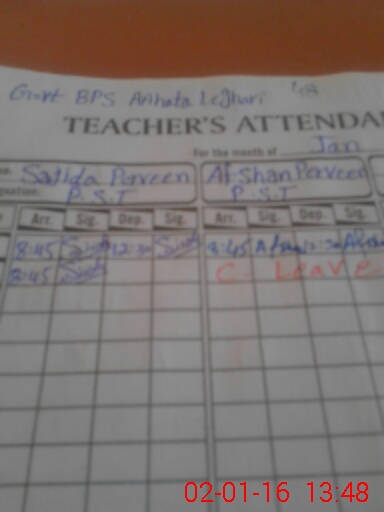 Govt BPS AAhata Leghari
TEACHER'S ATTENDA
For the month of Jan
Sajida Parveen AfShan Parveen
gnation: P.S.T P.S.T
Arr. Sig. Dep. Sig. Arr. Sig. Dep. Sig.
8:45 12:30 8:45 12:30
8:45 C- Leave
02-01-16 13:48